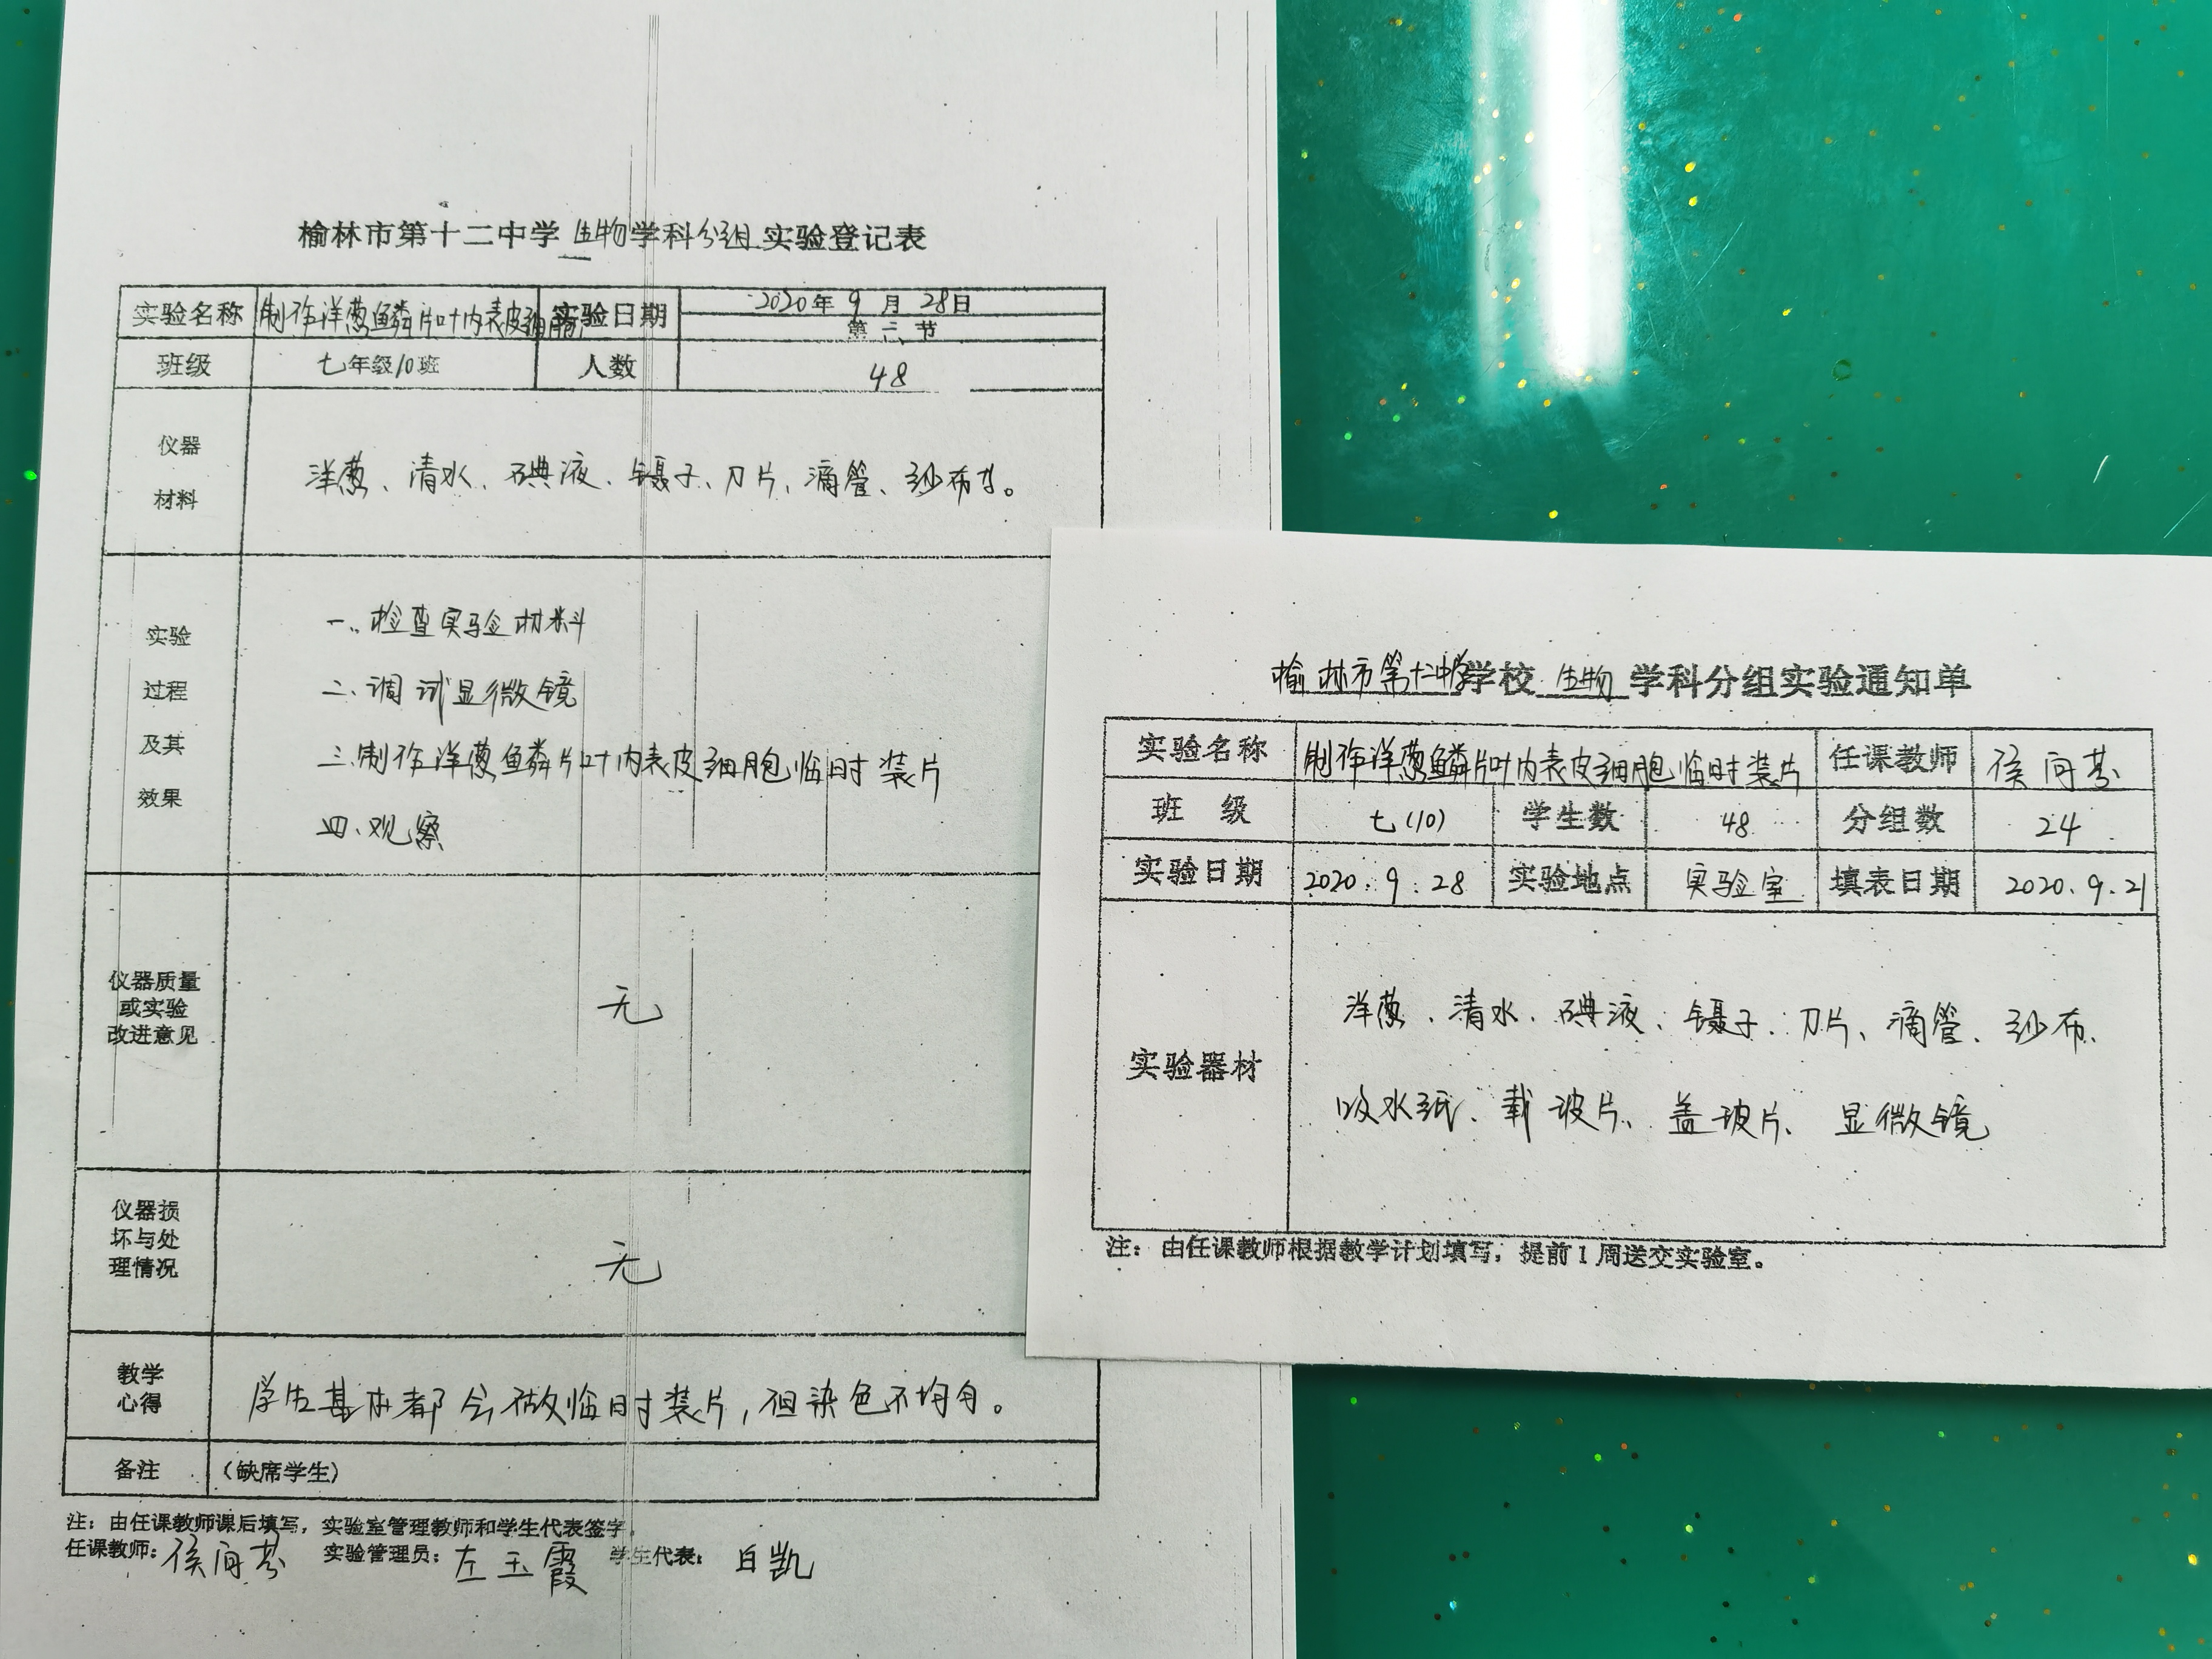 榆林市第十二中学生物学科分组实验登记表
实验名称 制作洋葱鳞片叶内表皮细胞 实验日期 2020年9月28日
第二节
班级 七年级10班 人数 48
仪器材料 洋葱、清水、碘液、镊子、刀片、滴管、纱布等。
实验过程及其效果
一、检查实验材料
二、调试显微镜
三、制作洋葱鳞片叶内表皮细胞临时装片
四、观察
仪器质量
或实验
改进意见
无
仪器损
坏与处
理情况
无
教学
心得
学生基本都会做临时装片,但染色不均匀。
备注 (缺席学生)
注:由任课教师课后填写,实验室管理教师和学生代表签字。
任课教师:侯向芬 实验管理员:左玉霞 学生代表:白凯
榆林市第十二中学学校生物学科分组实验通知单
实验名称 制作洋葱鳞片叶内表皮细胞临时装片 任课教师 侯向芬
班 级 七(10) 学生数 48 分组数 24
实验日期 2020.9.28 实验地点 实验室 填表日期 2020.9.21
实验器材
洋葱、清水、碘液、镊子、刀片、滴管、纱布、
吸水纸、载玻片、盖玻片、显微镜
注:由任课教师根据教学计划填写,提前1周送交实验室。